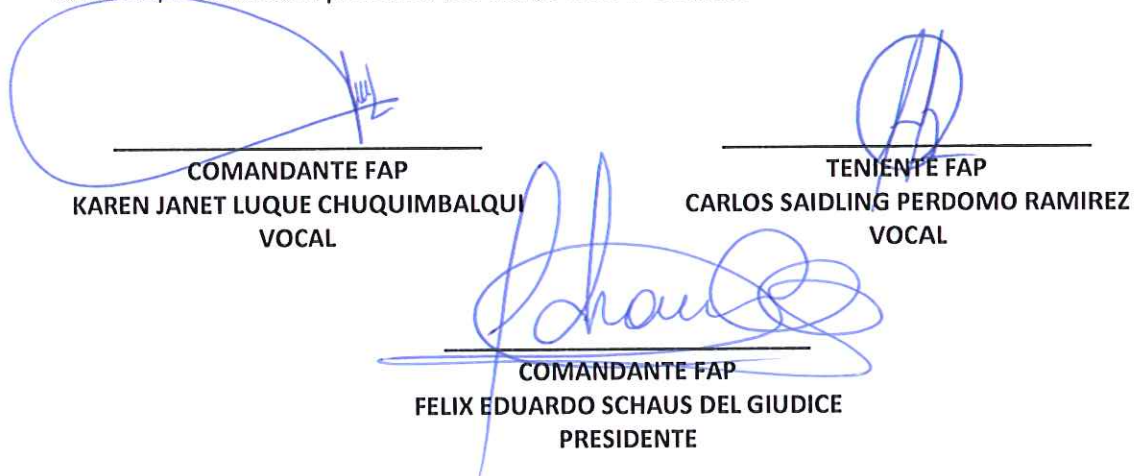 COMANDANTE FAP
KAREN JANET LUQUE CHUQUIMBALQUI
VOCAL
TENIENTE FAP
CARLOS SAIDLING PERDOMO RAMIREZ
VOCAL
COMANDANTE FAP
FELIX EDUARDO SCHAUS DEL GIUDICE
PRESIDENTE